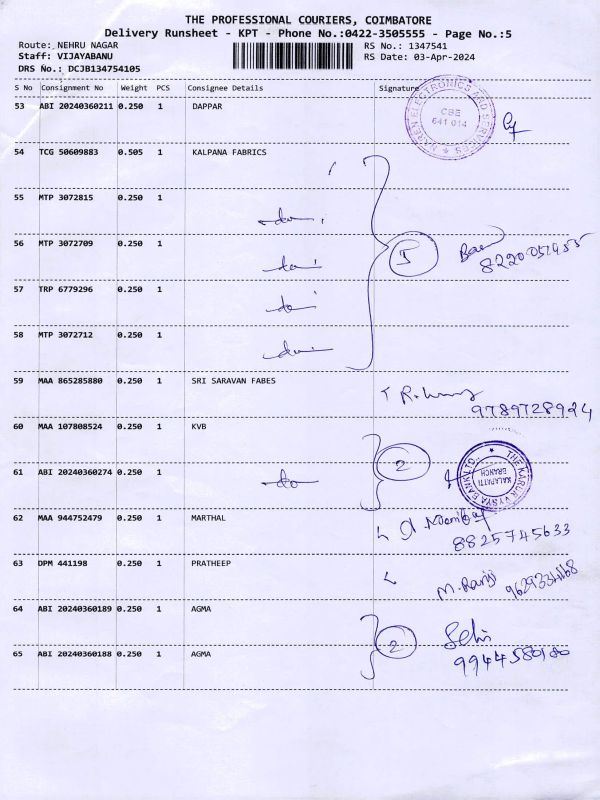 THE PROFESSIONAL COURIERS, COIMBATORE
Delivery Runsheet - KPT - Phone No.:0422-3505555 - Page No.:5
Route: NEHRU NAGAR
RS No.: 1347541
Staff: VIJAYABANU
RS Date: 03-Apr-2024
DRS No.: DCJB134754105
S No Consignment No Weight PCS Consignee Details Signature
53 ABI 20240360211 0.250 1 DAPPAR
MAREN ELECTRONICS AND SERVICES
CBE
641 014
54 TCG 50609883 0.505 1 KALPANA FABRICS
55 MTP 3072815 0.250 1
do
56 MTP 3072709 0.250 1
do
5
57 TRP 6779296 0.250 1
do
58 MTP 3072712 0.250 1
do
59 MAA 865285880 0.250 1 SRI SARAVAN FABES
9789728924
60 MAA 107808524 0.250 1 KVB
2
61 ABI 20240360274 0.250 1
do
THE KARUR VYSYA BANK LTD.,
KALAPATTI
BRANCH
62 MAA 944752479 0.250 1 MARTHAL
8825745633
63 DPM 441198 0.250 1 PRATHEEP
64 ABI 20240360189 0.250 1 AGMA
2
65 ABI 20240360188 0.250 1 AGMA